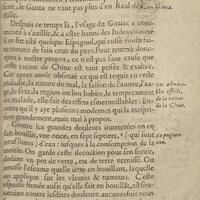 let, le Ganta ne vaut pas plus d'vn Real de
Depuis ce temps là, l'vsage du Gaiac a com-
mencé à s'auilir, & a esté banni des Indes comme
si ce fut esté quelque Espagnol, qui eusse
mourir de faim ceux du pays. Pour reuenir donc-
ques à nostre propos, ce n'est pas sans cause que
ceste racine de Chine est tant prisée & exaltée.
Car apres auoir obserué ce qui est requis en cela
nommément, la maladie mal, la saison de l'année, l'aa-
ge, le sexe, la region ou lon habite, le temperament
du malade, elle fait des effets esmerueillables: En-
uers qu'il y aye plusieurs modernes qui la mespri-
sent grandement, mais mal à propos.
Contre les grandes douleurs inueterées on en
fait bouillir, vne once, en sept septiers, (qui sont
sur liures) d'eau: iusques à la consomption de la
moitié. On garde ceste decoction pour s'en seruir,
dedans vn pot de verre, ou de terre vernissé. On
amasse l'escume quelle iette en bouillant, laquelle
on applique sur les vlceres & duretés. Ceste
espuisse fumée aussi qu'elle fait en bouillāt, est sou-
ueraine contre lesdites douleurs: aucunesfois nous
ses admira-
bles effects,
de la racine
de la Chine.